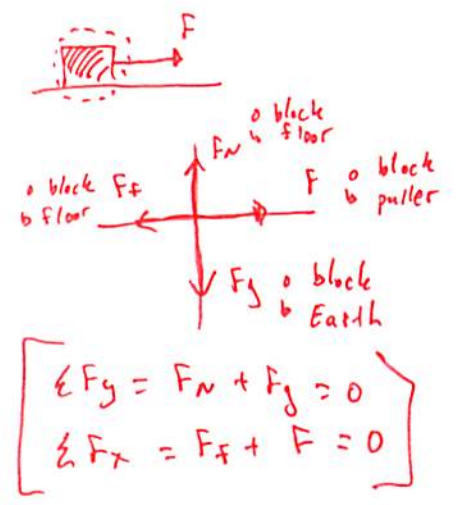 F
o block
F_N b floor
o block F_f
b floor
F o block
b puller
F_g o block
b Earth
ΣF_y = F_N + F_g = 0
ΣF_x = F_f + F = 0